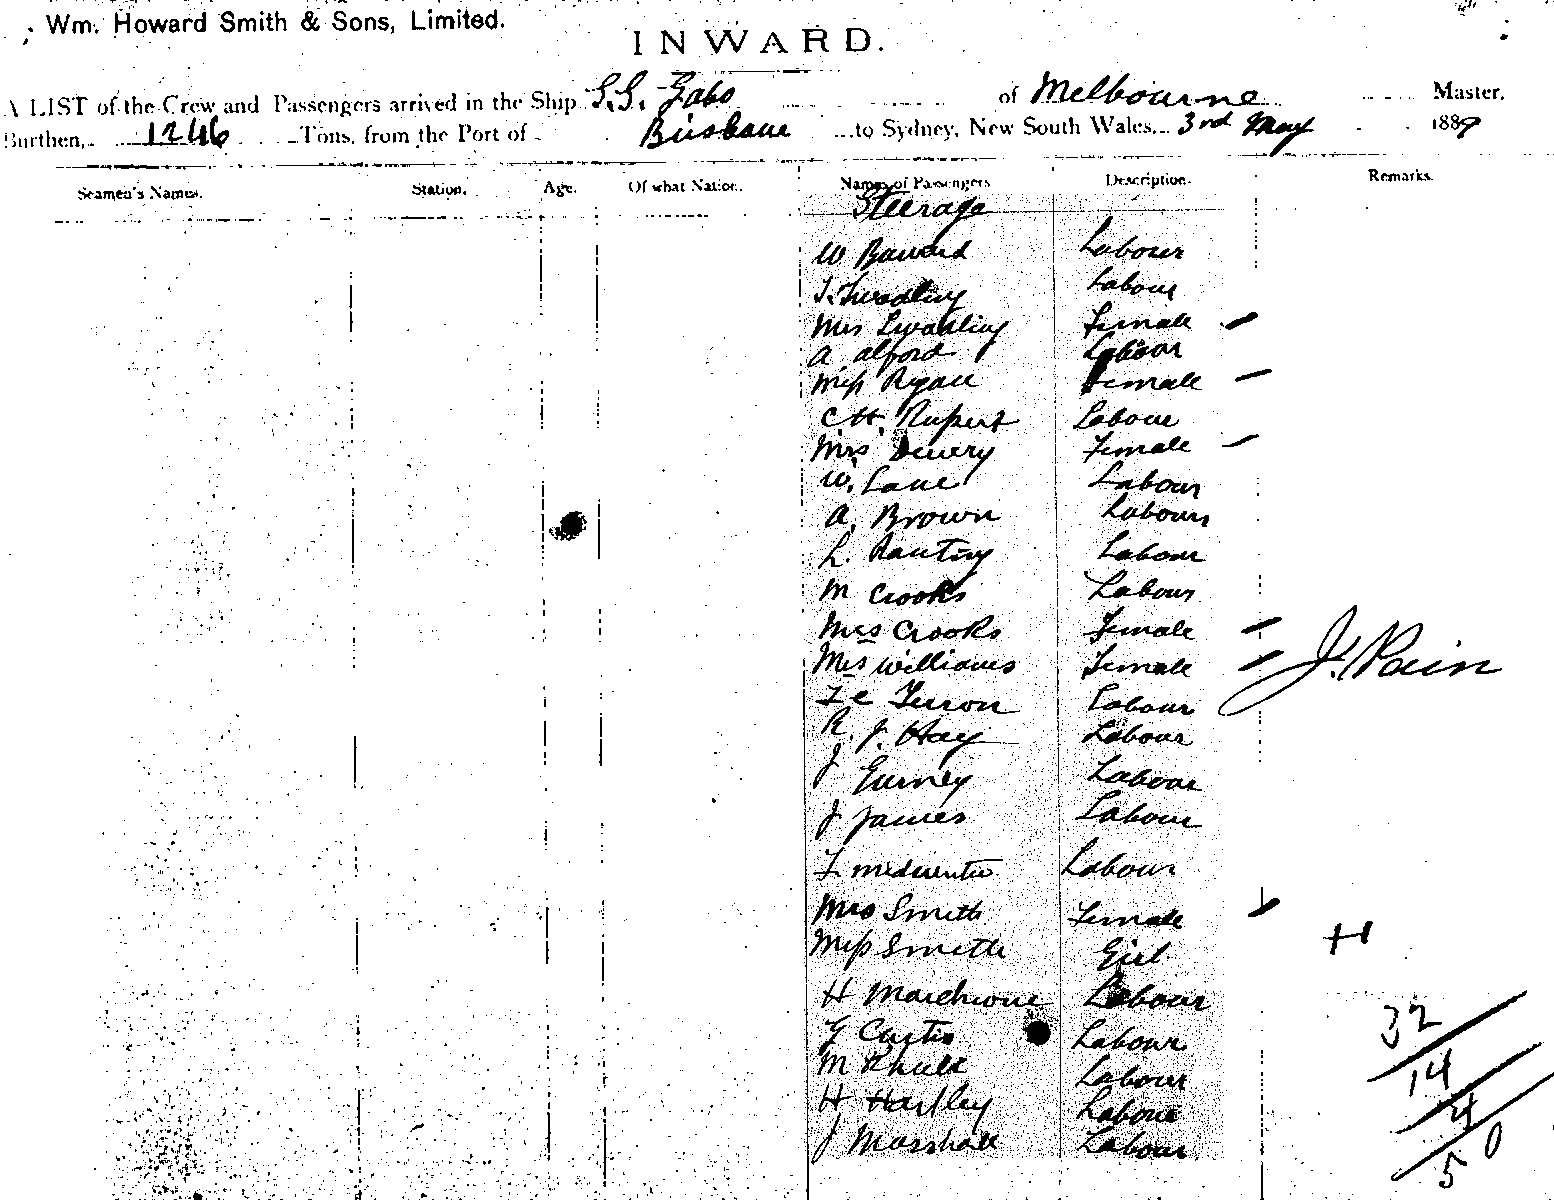 Wm. Howard Smith & Sons, Limited.
INWARD.
A LIST of the Crew and Passengers arrived in the Ship S.S. Gabo of Melbourne Master,
Burthen, 1246 Tons, from the Port of Brisbane to Sydney, New South Wales, 3rd May 1889
Seamen's Names. Station. Age. Of what Nation. Names of Passengers Description. Remarks.
Steerage
W Labour
Labour
Mrs Female
A Alford Labour
Miss Ryan Female
C.H. Rupert Labour
Mrs Female
W. Lane Labour
A. Brown Labour
L. Labour
M Crooks Labour
Mrs Crooks Female
Mrs Williams Female
J. Pain
Le Labour
R. J. Hay Labour
J Gurney Labour
J James Labour
Labour
Mrs Smith Female
Miss Smith Girl
H
H Labour
G Curtis Labour
32
M Labour
14
H Hartley Labour
4
J Marshall Labour
50